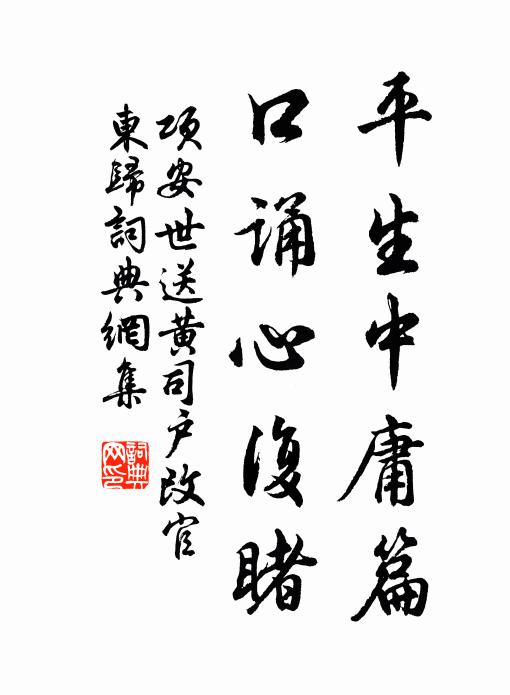 平生中庸篇
口誦心復睹
項安世送黃司戶改官
東歸詞典網集
詞典
网印